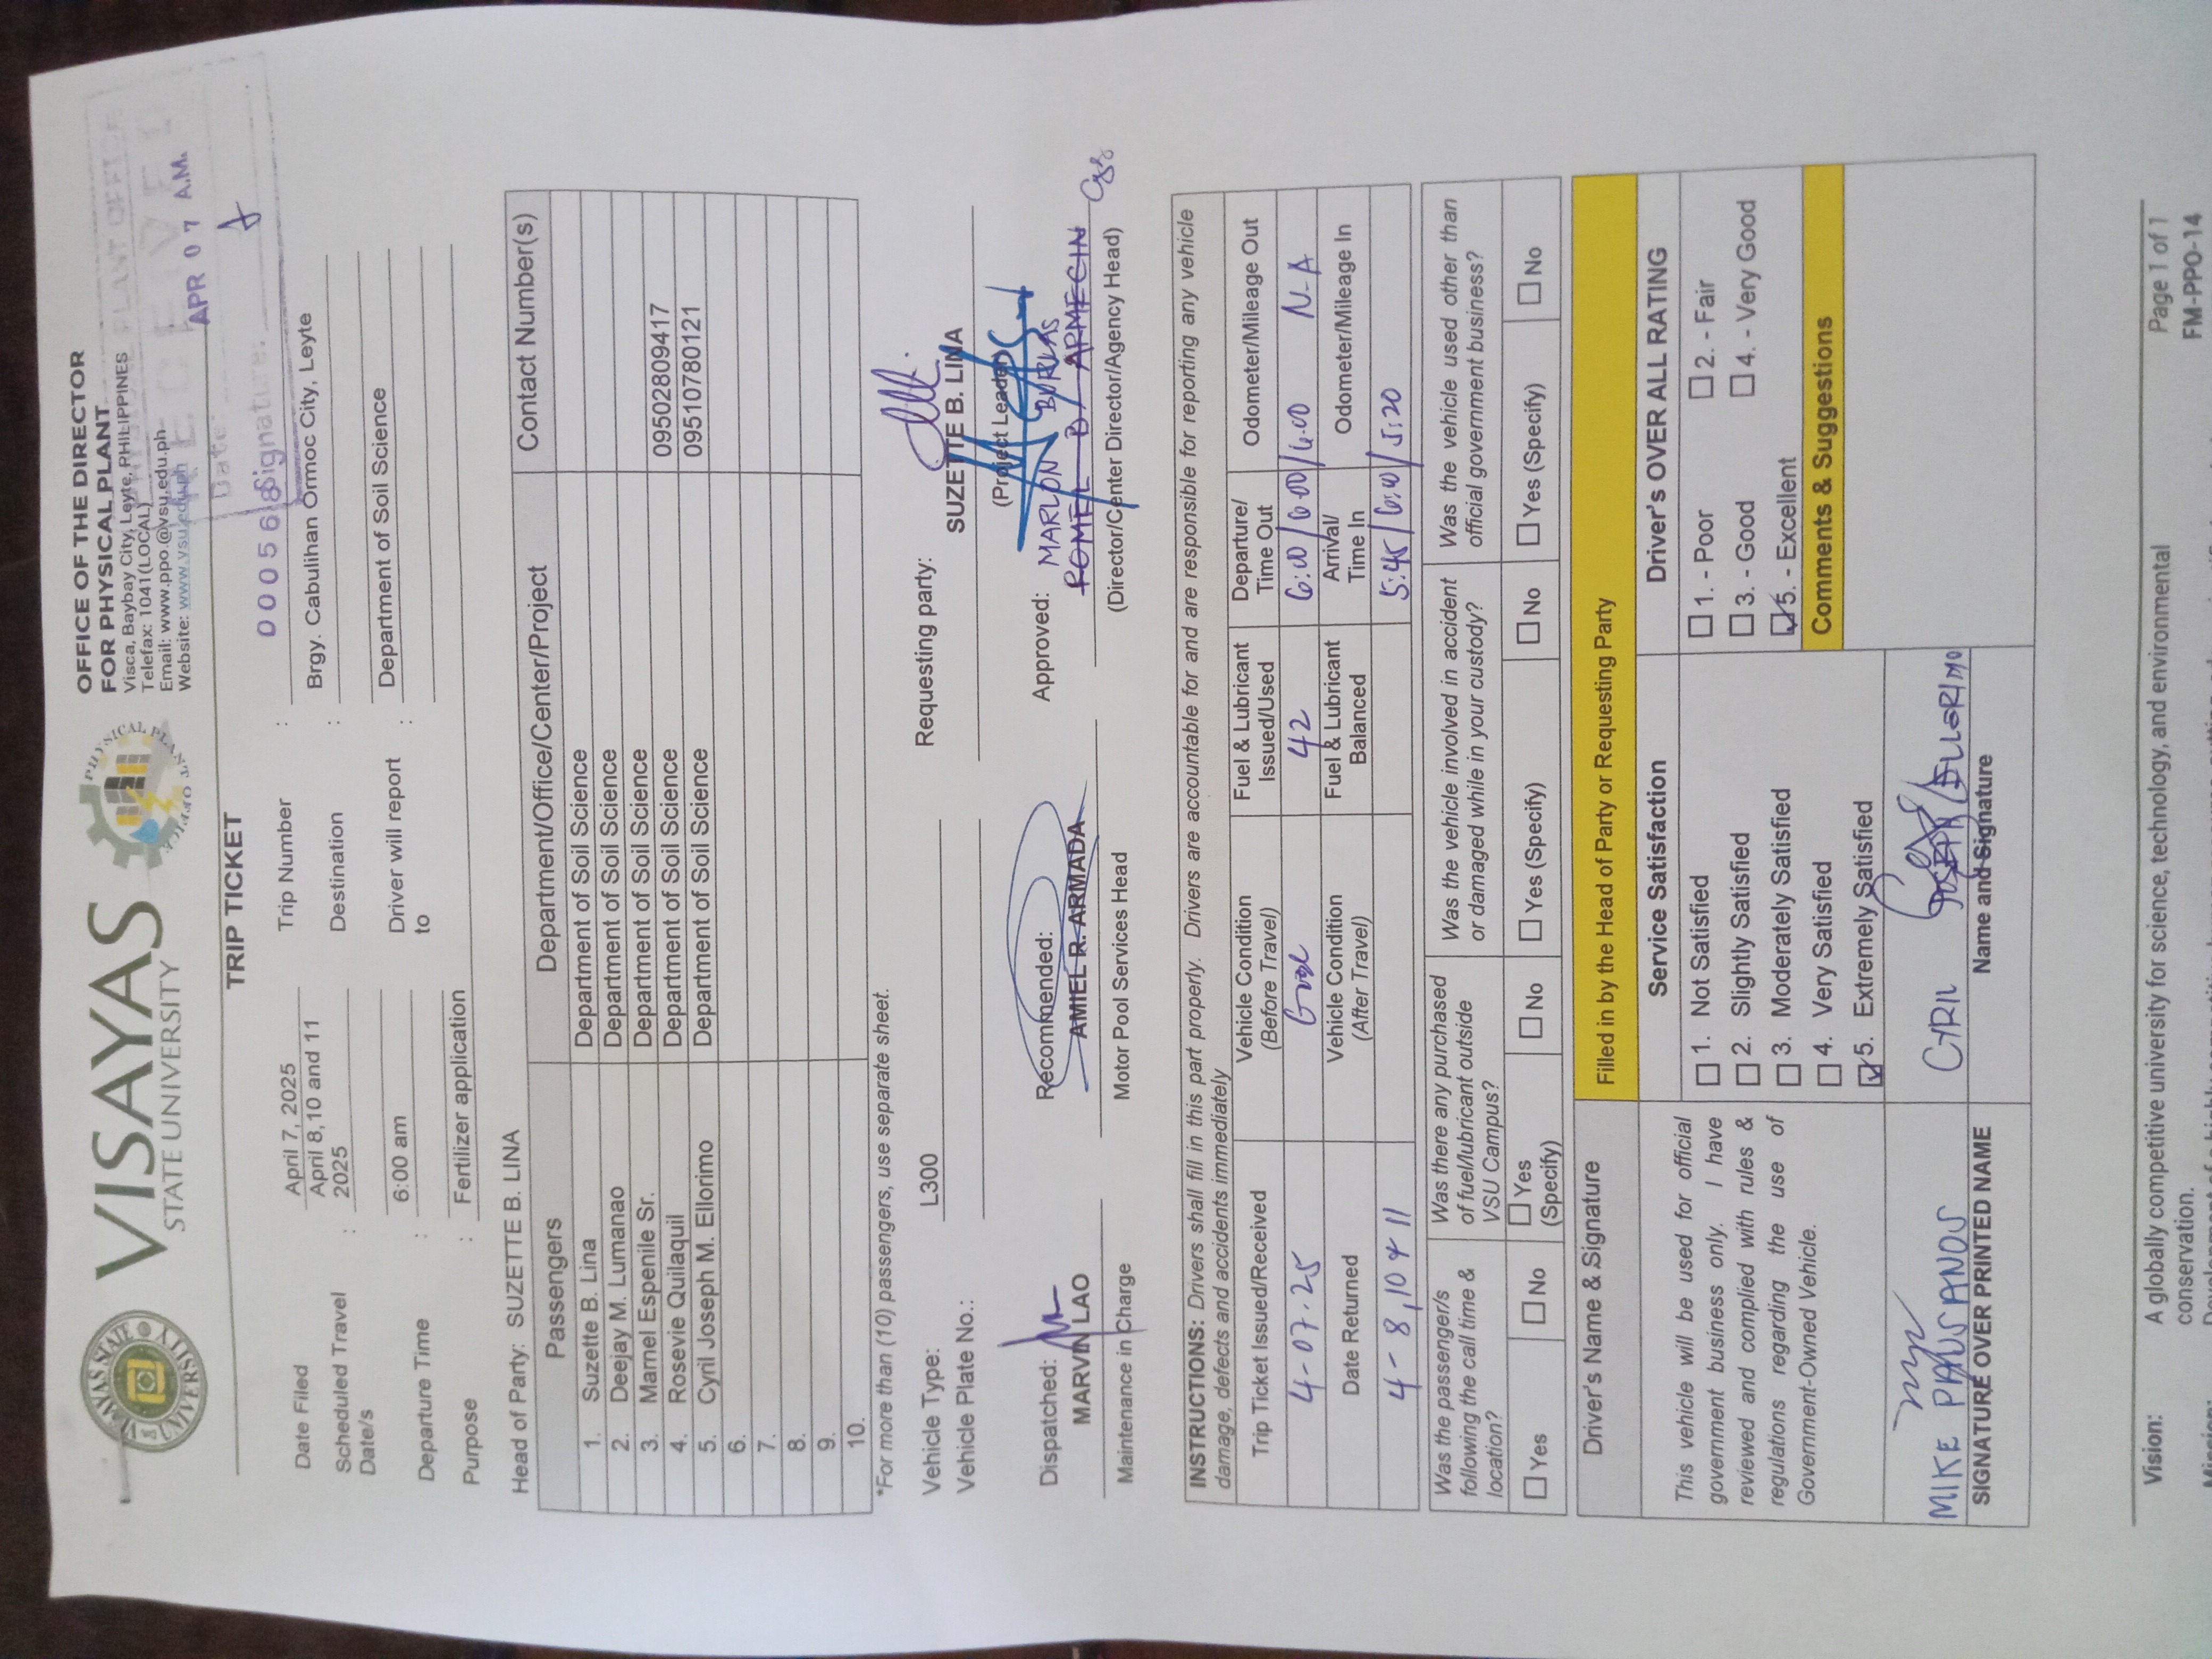 VISAYAS
STATE UNIVERSITY
OFFICE OF THE DIRECTOR
FOR PHYSICAL PLANT
Visca, Baybay City, Leyte, PHILIPPINES
Telefax: 1041(LOCAL)
Email: www.ppo.@vsu.edu.ph
Website: www.vsu.edu.ph
RECEIVED
APR 07 A.M.
Date:
Signature:
TRIP TICKET
Date Filed April 7, 2025
Trip Number : 0005688
Scheduled Travel Date/s : April 8,10 and 11 2025
Destination : Brgy. Cabulihan Ormoc City, Leyte
Departure Time : 6:00 am
Driver will report to : Department of Soil Science
Purpose : Fertilizer application
Head of Party: SUZETTE B. LINA
Passengers Department/Office/Center/Project Contact Number(s)
1. Suzette B. Lina Department of Soil Science
2. Deejay M. Lumanao Department of Soil Science
3. Marnel Espenile Sr. Department of Soil Science
4. Rosevie Quilaquil Department of Soil Science 09502809417
5. Cyril Joseph M. Ellorimo Department of Soil Science 09510780121
6.
7.
8.
9.
10.
*For more than (10) passengers, use separate sheet.
Vehicle Type: L300
Vehicle Plate No.:
Requesting party:
SUZETTE B. LINA
(Project Leader)
Dispatched:
MARVIN LAO
Maintenance in Charge
Recommended:
AMIEL R. ARMADA
Motor Pool Services Head
Approved:
MARLON BURLAS
ROMEL B. ARMECIN
(Director/Center Director/Agency Head)
INSTRUCTIONS: Drivers shall fill in this part properly. Drivers are accountable for and are responsible for reporting any vehicle
damage, defects and accidents immediately
Trip Ticket Issued/Received Vehicle Condition (Before Travel) Fuel & Lubricant Issued/Used Departure/ Time Out Odometer/Mileage Out
4-07-25 Good 42 6:00/6:00/6:00 N.A
Date Returned Vehicle Condition (After Travel) Fuel & Lubricant Balanced Arrival/ Time In Odometer/Mileage In
4-8,10 & 11 5:45/ /5:20
Was the passenger/s following the call time & location?
Was there any purchased of fuel/lubricant outside VSU Campus?
Was the vehicle involved in accident or damaged while in your custody?
Was the vehicle used other than official government business?
Yes No Yes (Specify) No Yes (Specify) No Yes (Specify) No
Driver's Name & Signature
Filled in by the Head of Party or Requesting Party
This vehicle will be used for official
government business only. I have
reviewed and complied with rules &
regulations regarding the use of
Government-Owned Vehicle.
Service Satisfaction
1. Not Satisfied
2. Slightly Satisfied
3. Moderately Satisfied
4. Very Satisfied
5. Extremely Satisfied
Driver's OVER ALL RATING
1. - Poor 2. - Fair
3. - Good 4. - Very Good
5. - Excellent
Comments & Suggestions
MIKE PAUSANOS
SIGNATURE OVER PRINTED NAME
CYRIL JOSEPH ELLORIMO
Name and Signature
Vision: A globally competitive university for science, technology, and environmental
conservation.
Page 1 of 1
FM-PPO-14